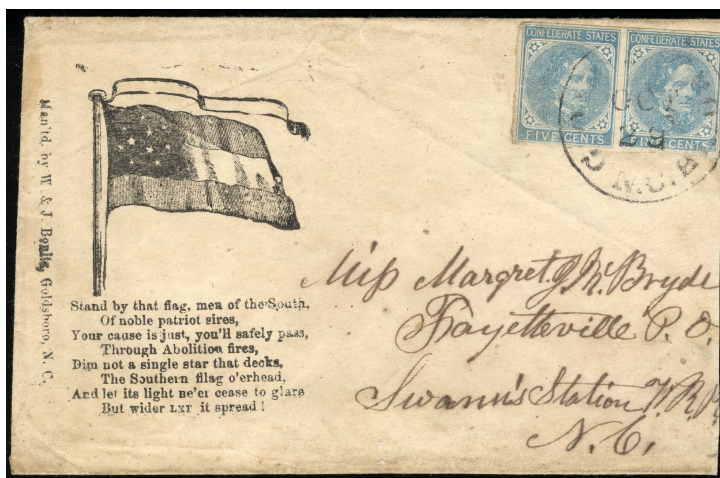 CONFEDERATE STATES CONFEDERATE STATES
FIVE CENTS FIVE CENTS
OCT
29
N.C.
Man'fd. by W. & J. Bonitz, Goldsboro, N. C.
Stand by that flag, men of the South,
Of noble patriot sires,
Your cause is just, you'll safely pass,
Through Abolition fires,
Dim not a single star that decks,
The Southern filag o'erhead,
And let its light ne'er cease to glare
But wider LET it spread !
Miss Margret J. McBryde
Fayetteville P. O.
Swann's Station W. R. R.
N. C.